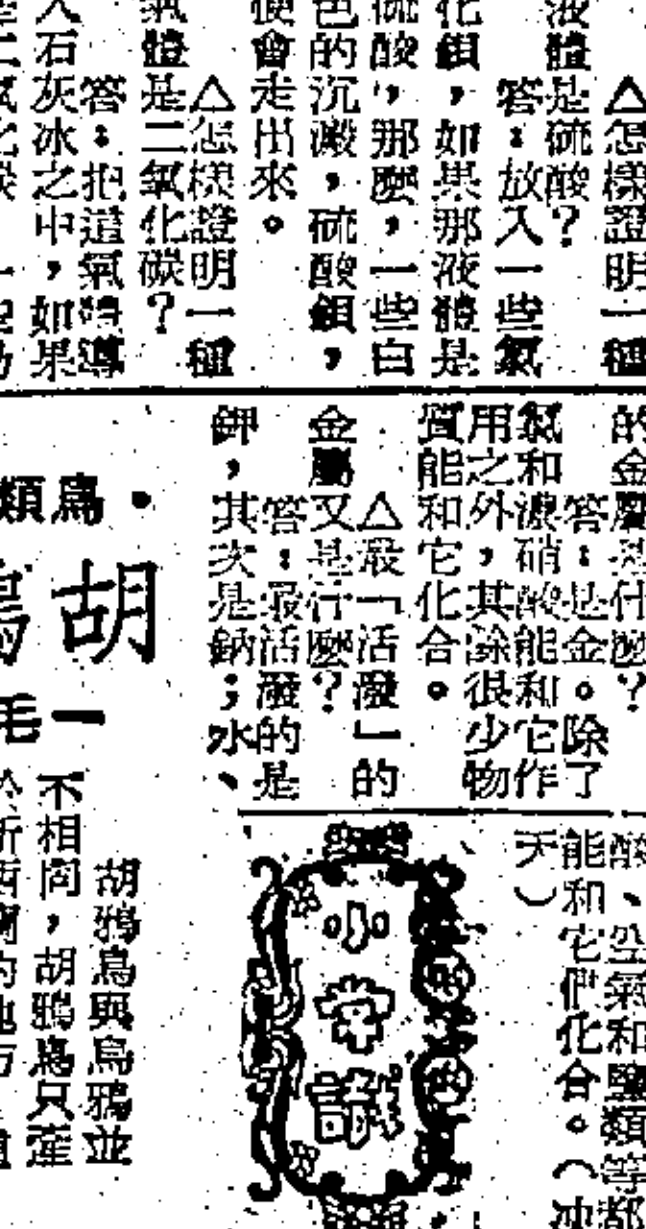 △怎樣證明一種
液體是硫酸？
答：放入一些氯
化鋇，如果那液體是
硫酸，那麼，一些白
色的沉澱，硫酸鋇，
便會走出來。
△怎樣證明一種
氣體是二氧化碳？
答：把這氣體導
入石灰水之中，如果
的金屬是什麼？
答：是金。除了
氯和濃硝酸能和它作
用之外，其餘很少物
質能和它化合。
△最「活潑」的
金屬又是什麼？
答：最活潑的是
鉀，其次是鈉；水、
酸、空氣和鹽類等都
能和它們化合。（冲
天）
小常識
•鳥類
胡
一毛
胡鴉鳥與烏鴉並
不相同，胡鴉鳥只產